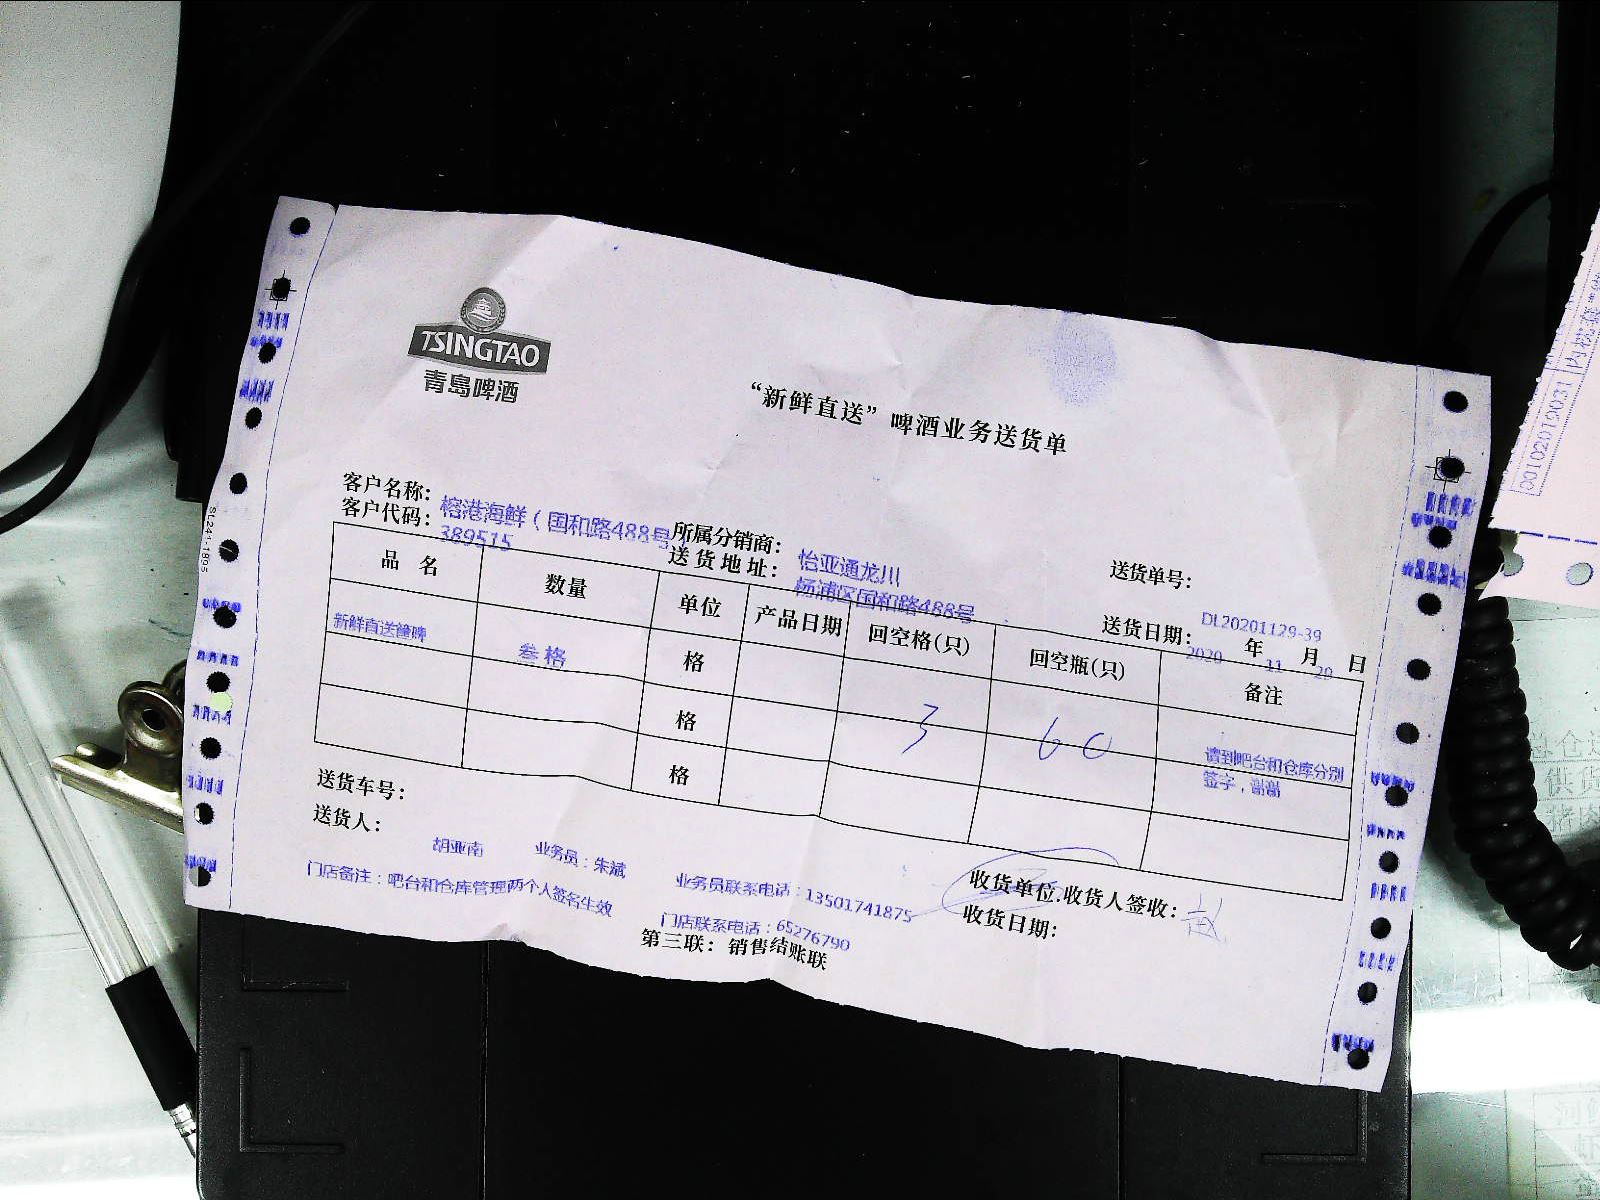 TSINGTAO
青岛啤酒
“新鲜直送”啤酒业务送货单
客户名称： 榕港海鲜（国和路488号）
客户代码： 389515
所属分销商： 怡亚通龙川
送货地址： 杨浦区国和路488号
送货单号： DL20201129-39
送货日期： 2020 年 11 月 29 日
品名 数量 单位 产品日期 回空格(只) 回空瓶(只) 备注
新鲜直送 叁格 格
格 3 60 请到吧台和仓库分别签字，谢谢
格
送货车号：
送货人： 胡亚南 业务员：朱斌 业务员联系电话：13501741875 收货单位.收货人签收： 赵
门店备注：吧台和仓库管理两个人签名生效 门店联系电话：65276790 收货日期：
第三联：销售结账联
001020190031